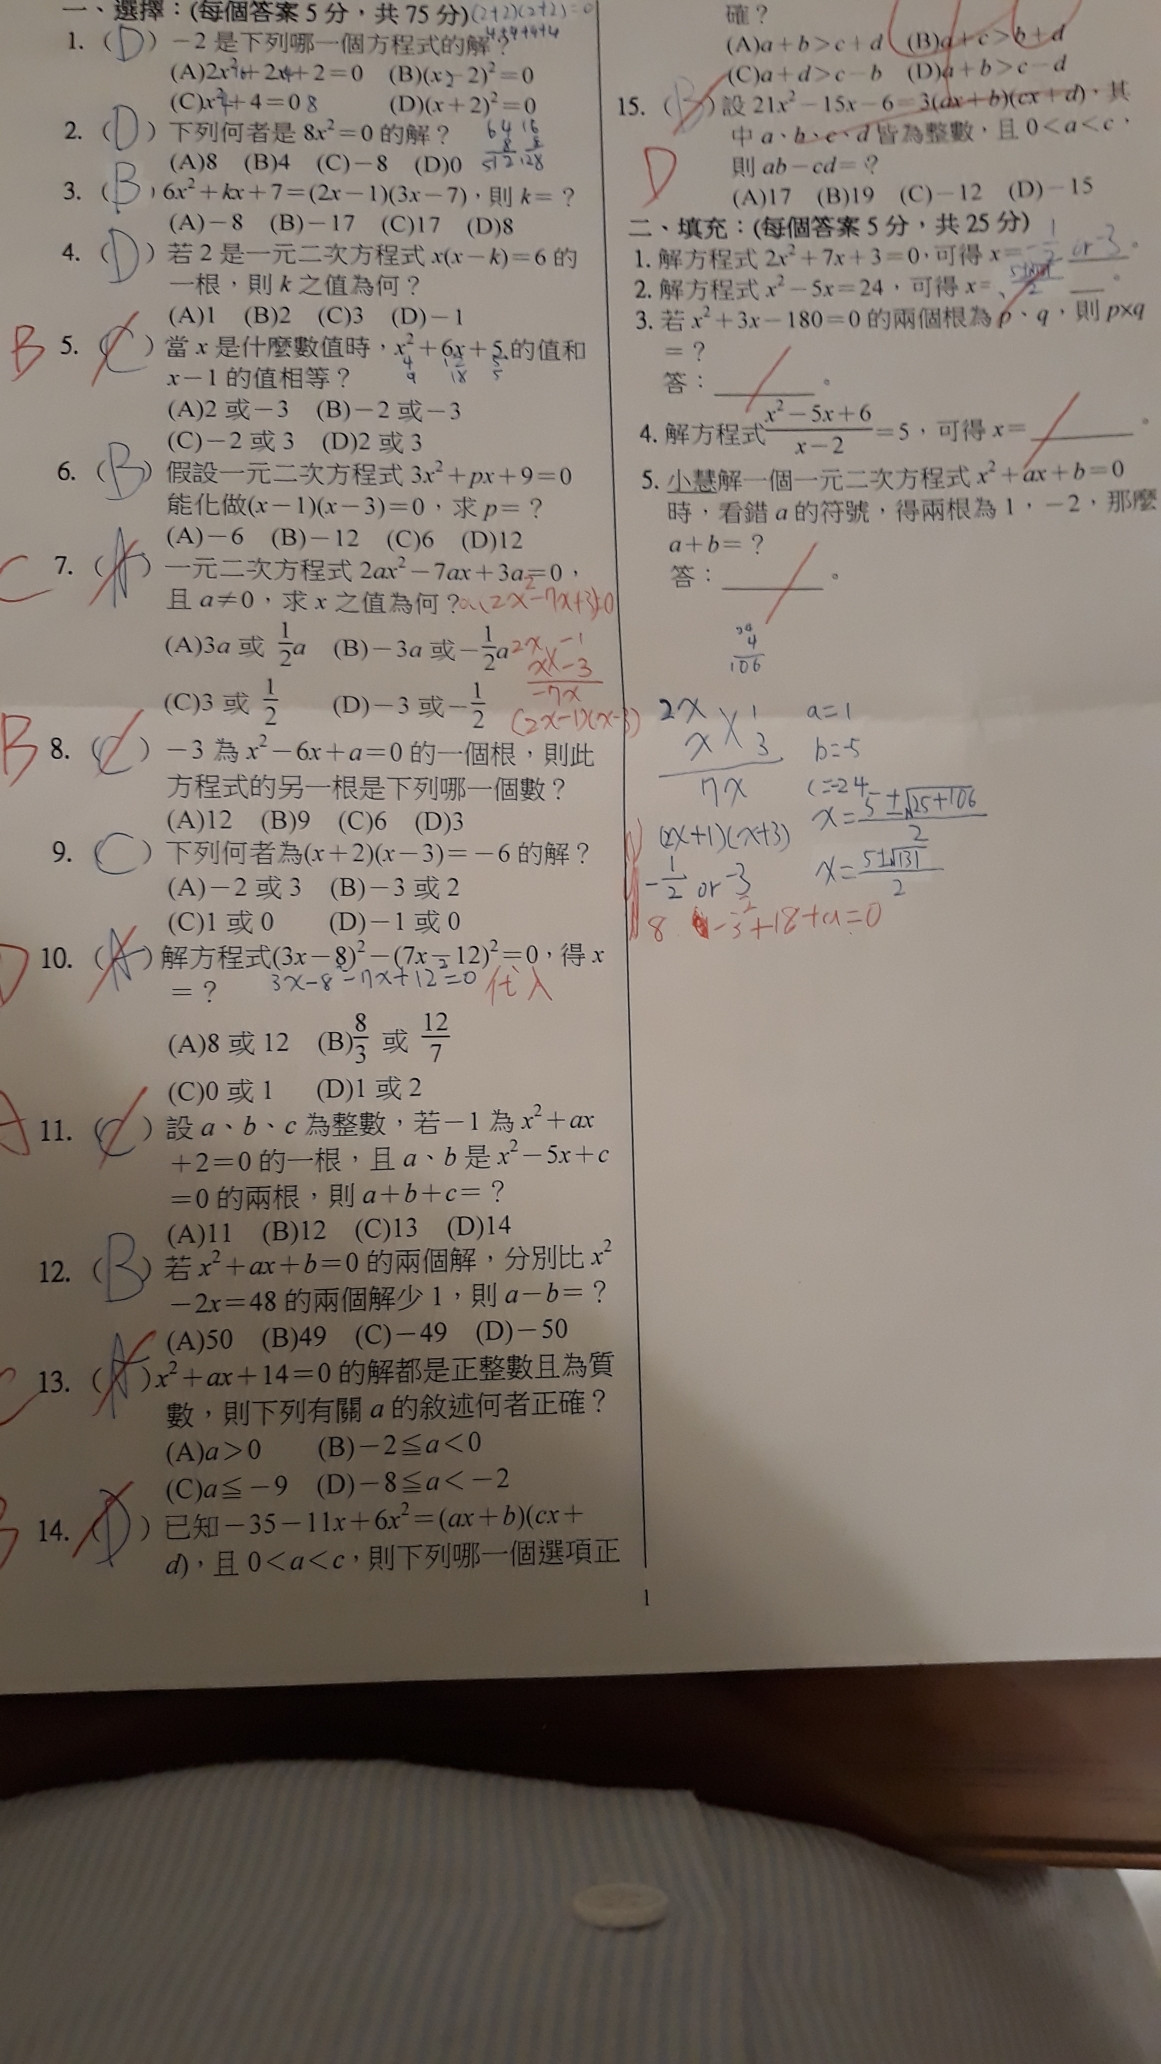 一、選擇：(每個答案5分，共75分)(2+2)(2+2)=0
1. (D) −2是下列哪一個方程式的解？
(A)2x²+2x+2=0 (B)(x−2)²=0
(C)x²+4=0 8 (D)(x+2)²=0
2. (D) 下列何者是8x²=0的解？
(A)8 (B)4 (C)−8 (D)0
3. (B) 6x²+kx+7=(2x−1)(3x−7)，則k=？
(A)−8 (B)−17 (C)17 (D)8
4. (D) 若2是一元二次方程式x(x−k)=6的
一根，則k之值為何？
(A)1 (B)2 (C)3 (D)−1
B 5. (C) 當x是什麼數值時，x²+6x+5的值和
x−1的值相等？
(A)2或−3 (B)−2或−3
(C)−2或3 (D)2或3
6. (B) 假設一元二次方程式3x²+px+9=0
能化做(x−1)(x−3)=0，求p=？
(A)−6 (B)−12 (C)6 (D)12
C 7. (A) 一元二次方程式2ax²−7ax+3a=0，
且a≠0，求x之值為何？a(2x²−7x+3)=0
(A)3a或1/2a (B)−3a或−1/2a
2x −1
x −3
−7x
(C)3或1/2 (D)−3或−1/2
(2x−1)(x−3)
B 8. (C) −3為x²−6x+a=0的一個根，則此
方程式的另一根是下列哪一個數？
(A)12 (B)9 (C)6 (D)3
9. (C) 下列何者為(x+2)(x−3)=−6的解？
(A)−2或3 (B)−3或2
(C)1或0 (D)−1或0
D 10. (A) 解方程式(3x−8)²−(7x−12)²=0，得x
=？ 3x−8²−7x+12²=0 代入
(A)8或12 (B)8/3或12/7
(C)0或1 (D)1或2
A 11. (C) 設a、b、c為整數，若−1為x²+ax
+2=0的一根，且a、b是x²−5x+c
=0的兩根，則a+b+c=？
(A)11 (B)12 (C)13 (D)14
12. (B) 若x²+ax+b=0的兩個解，分別比x²
−2x=48的兩個解少1，則a−b=？
(A)50 (B)49 (C)−49 (D)−50
C 13. (A) x²+ax+14=0的解都是正整數且為質
數，則下列有關a的敘述何者正確？
(A)a>0 (B)−2≦a<0
(C)a≦−9 (D)−8≦a<−2
B 14. (D) 已知−35−11x+6x²=(ax+b)(cx+
d)，且0<a<c，則下列哪一個選項正
確？
(A)a+b>c+d (B)a+c>b+d
(C)a+d>c−b (D)a+b>c−d
15. (B) 設21x²−15x−6=3(ax+b)(cx+d)，其
中a、b、c、d皆為整數，且0<a<c，
D 則ab−cd=？
(A)17 (B)19 (C)−12 (D)−15
二、填充：(每個答案5分，共25分)
1. 解方程式2x²+7x+3=0，可得x=−1/2 or −3。
2. 解方程式x²−5x=24，可得x=
3. 若x²+3x−180=0的兩個根為p、q，則p×q
=？
答：。
4. 解方程式(x²−5x+6)/(x−2)=5，可得x=。
5. 小慧解一個一元二次方程式x²+ax+b=0
時，看錯a的符號，得兩根為1，−2，那麼
a+b=？
答：。
4
106
2x 1
x 3
7x
(2x+1)(x+3)
−1/2 or −3
a=1
b=−5
c=−24
x=5±√25+106/2
x=5±√131/2
8. −3²+18+a=0
1